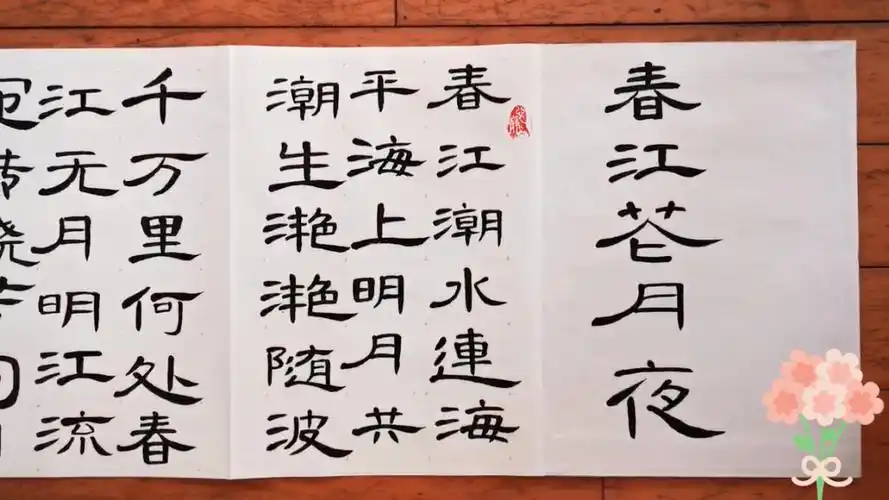 春江花月夜
春江潮水連海
平海上明月共
潮生滟滟随波
千万里何处春
江无月明江流
宛转绕芳甸